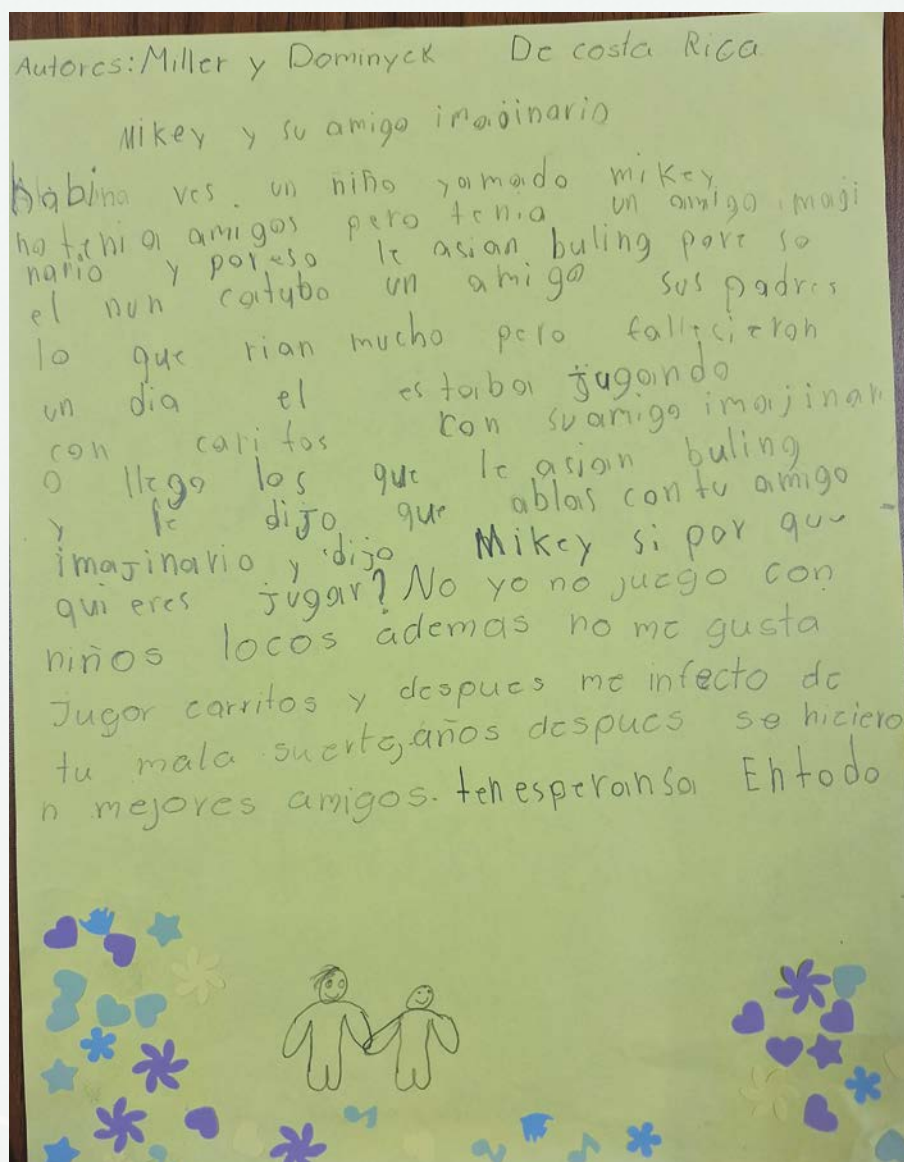 Autores: Miller y Dominyck De costa Rica
Mikey y su amigo imajinario
habina ves. un niño yamado mikey
no tenia amigos pero tenia un amigo imagi
nario y poreso le asian buling pore so
el nun catubo un amigo sus padres
lo que rian mucho pero fallecieron
un dia el estaba jugando
con caritos con su amigo imajinari
o llego los que le asian buling
y le dijo que ablas con tu amigo
imajinario y dijo Mikey si por que
quieres jugar? No yo no juego con
niños locos ademas no me gusta
Jugar carritos y despues me infecto de
tu mala suerte, años despues se hiciero
n mejores amigos. ten esperansa En todo